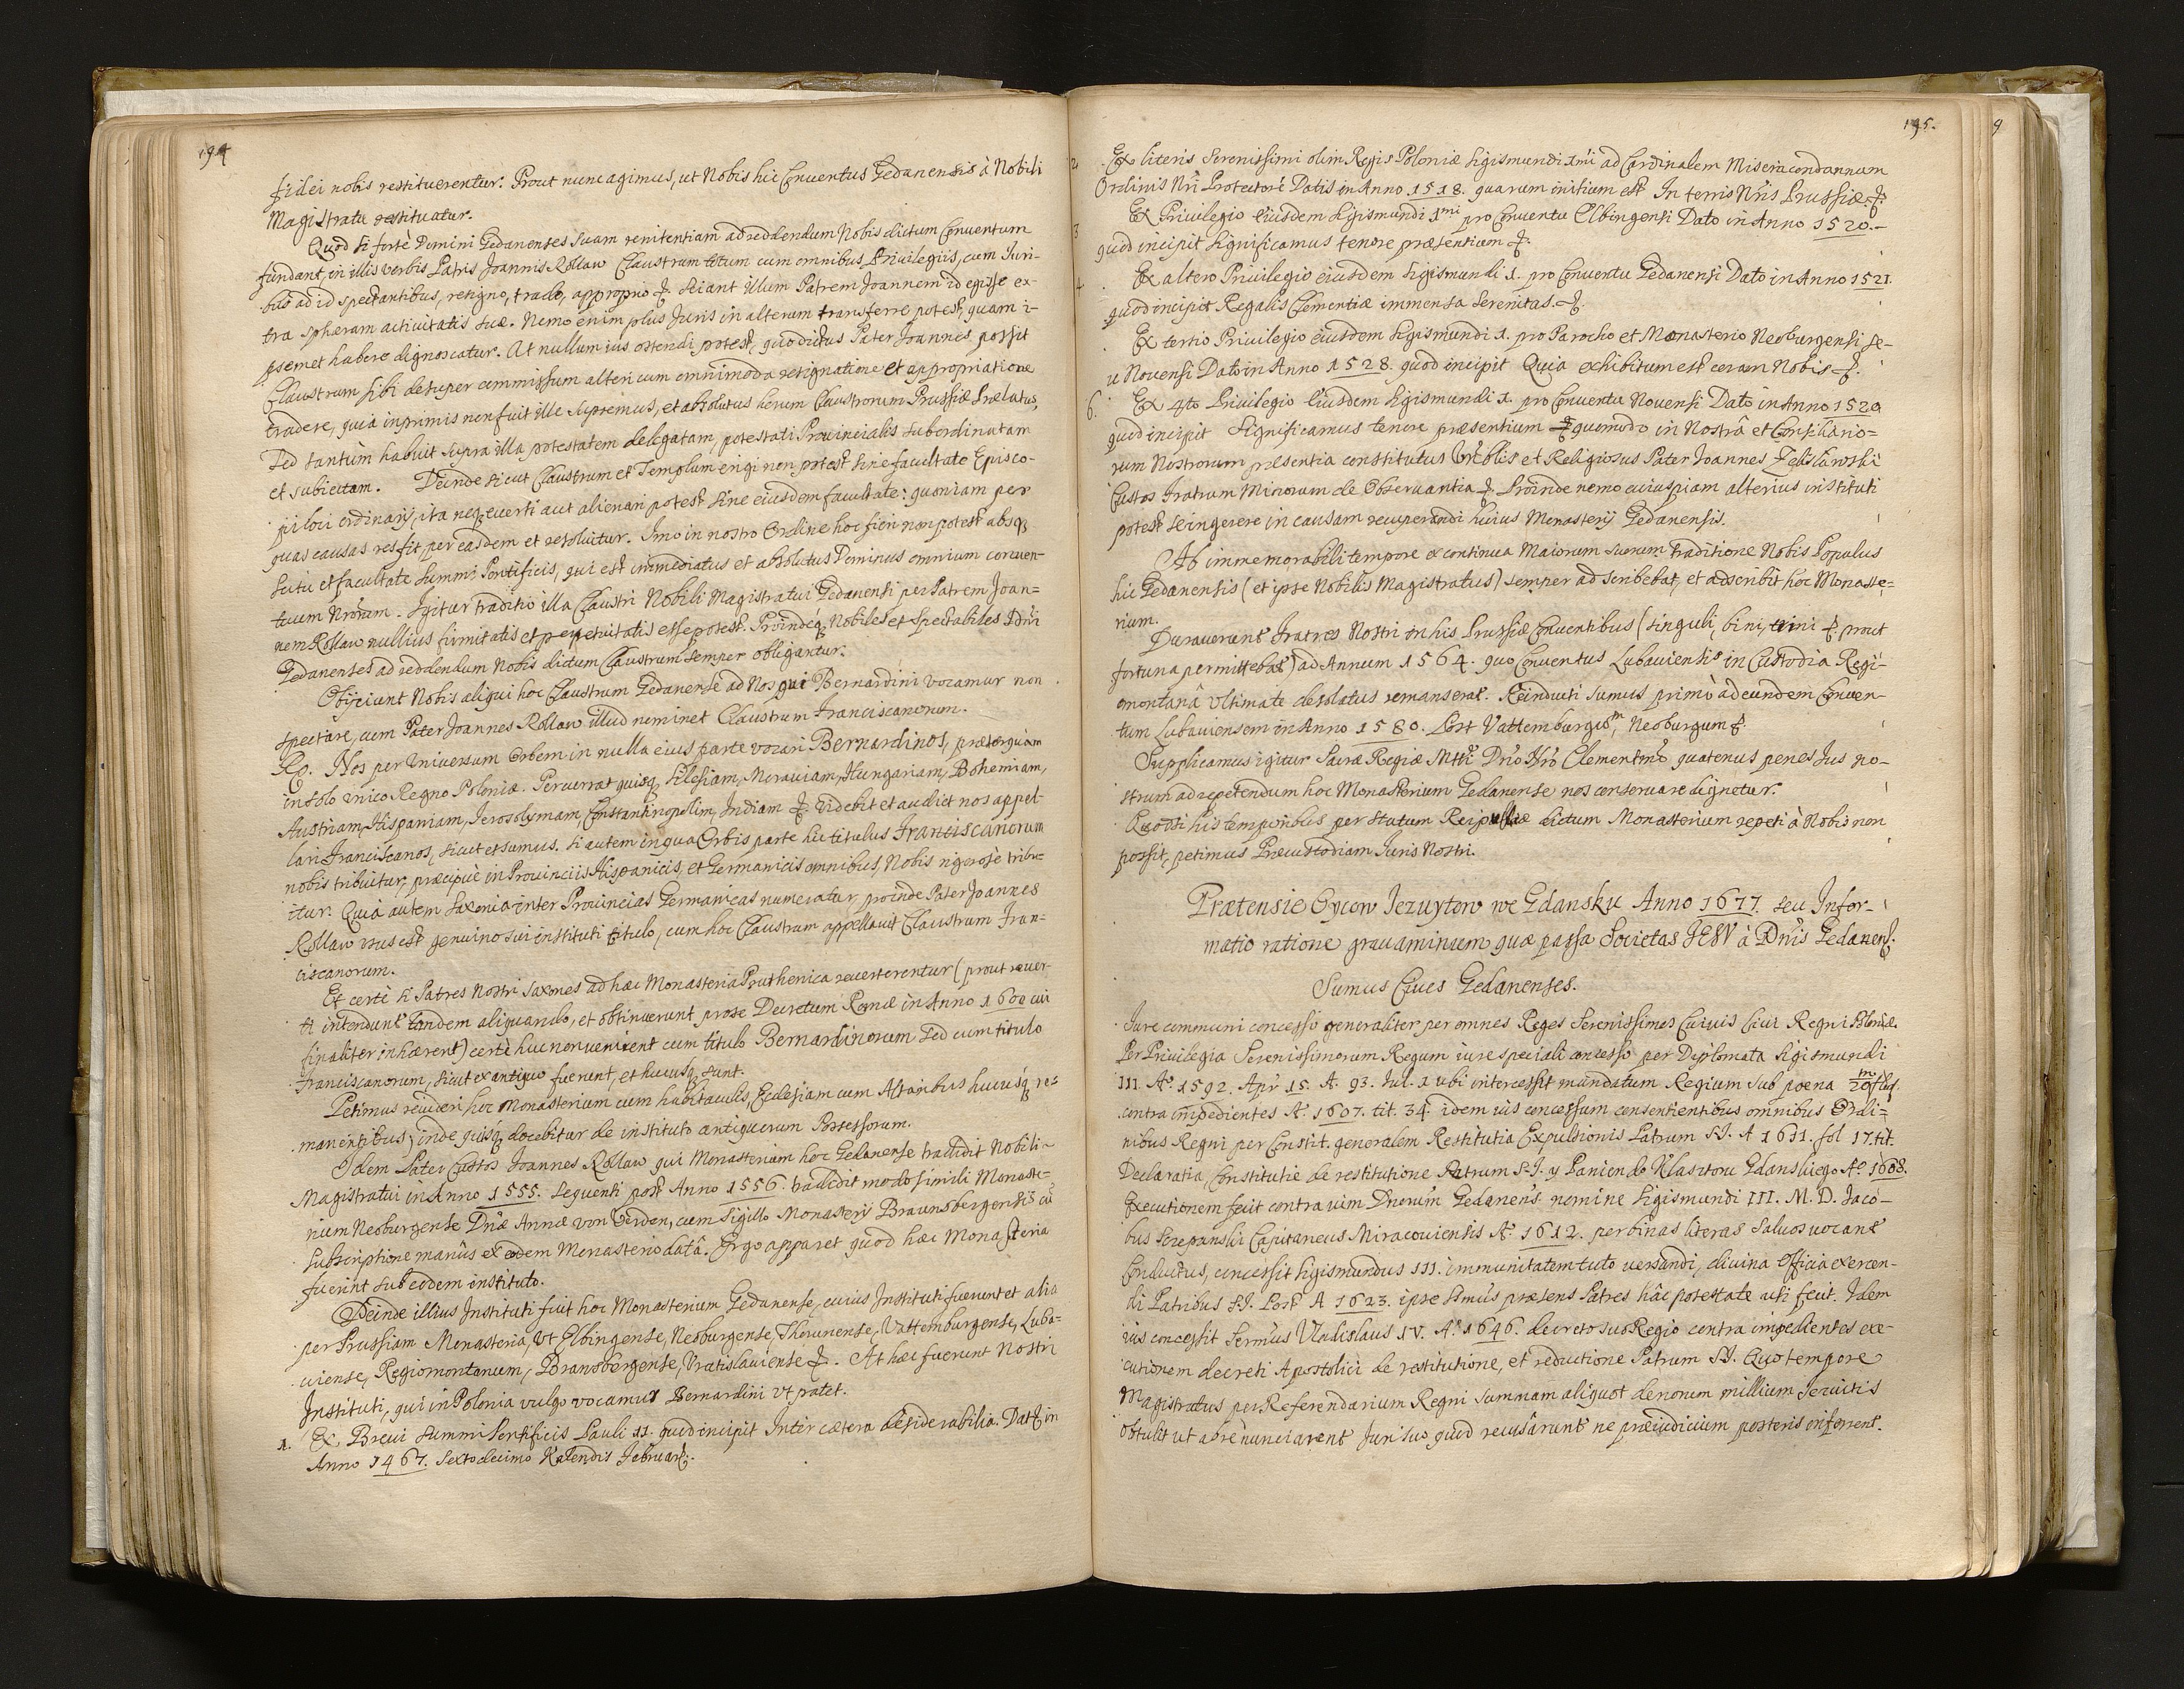 194
fidei nobis restituerentur. Prout nunc agimus, ut Nobis hic Conuentus Gedanensis à Nobili
Magistratu restituatur.
Quod si fortè Domini Gedanenses suam renitentiam ad reddendum Nobis dictum Conuentum
fundant in illis verbis Patris Joannis Rollaw Claustrum totum cum omnibus Priuilegiis, cum Juri-
bus ad id spectantibus, resigno, trado, approprio &. sciant illum Patrem Joannem id egisse ex-
tra spheram actiuitatis suæ. Nemo enim plus Juris in alterum transferre potest, quam i-
psemet habere dignoscatur. At nullum ius ostendi potest, quo dictus Pater Joannes possit
Claustrum sibi desuper commissum alteri cum omnimoda resignatione et appropriatione
tradere, quia inprimis non fuit ille supremus, et absolutus horum Claustrorum Prussiæ Prælatus,
sed tantùm habuit supra illa potestatem delegatam, potestati Prouincialis subordinatam
et subiectam. Deinde sicut Claustrum et Templum erigi non potest sine facultate Episco-
pi loci ordinarij, ita neq euerti aut alienari potest sine eiusdem facultate: quoniam per
quas causas res fit per easdem et resoluitur. Imo in nostro Ordine hoc fieri non potest absq
scitu et facultate Summi Pontificis, qui est immediatus et absolutus Dominus omnium conuen-
tuum Nrorum. Igitur traditio illa Claustri Nobili Magistratui Gedanensi per Patrem Joan=
nem Rollaw nullius firmitatis et perpetuitatis esse potest. Proindeq Nobiles et Spectabiles Dni
Gedanenses ad reddendum Nobis dictum Claustrum semper obligantur.
Obijciunt Nobis aliqui hoc Claustrum Gedanense ad Nos qui Bernardini vocamur non
spectare, cum Pater Joannes Rollaw illud nominet Claustrum Franciscanorum.
Rp. Nos per Vniuersum Orbem in nulla eius parte vocari Bernardinos, præterquàm
in solo vnico Regno Poloniæ. Percurrat quisq Silesiam, Morauiam, Hungariam, Bohemiam,
Austriam, Hispaniam, Jerosolymam, Constantinopolim, Indiam & videbit et audiet nos appel-
lari Franciscanos, sicut et sumus. Si autem in qua Orbis parte hic titulus Franciscanorum
nobis tribuitur, præcipuè in Prouinciis Hispanicis, et Germanicis omnibus, Nobis rigorosè tribu-
itur. Quia autem Saxonia inter Prouincias Germanicas numeratur, proinde Pater Joannes
Rollaw vsus est genuino sui instituti titulo, cum hoc Claustrum appellauit Claustrum Fran-
ciscanorum.
Et certè si Patres Nostri Saxones ad hæc Monasteria Pruthenica reuerterentur (prout reuer-
ti intendunt tandem aliquando, et obtinuerunt pro se Decretum Romæ in Anno 1600 cui
finaliter inhærent) certè huc non venirent cum titulo Bernardinorum sed cum titulo
Franciscanorum, sicut ex antiquo fuerunt, et hucusq sunt.
Petimus reuideri hoc Monasterium cum habitaculis, Ecclesiam cum Altaribus hucusq re-
manentibus; inde quisq docebitur de instituto antiquorum Possessorum.
Idem Pater Custos Joannes Rollaw qui Monasterium hoc Gedanense tradidit Nobili-
Magistratui in Anno 1555. Sequenti post Anno 1556. tradidit modo simili Monaste-
rium Neoburgense Dnæ Annæ von Verden, cum Sigillo Monasterij Braunsbergensis cū
subscriptione manûs ex eodem Monasterio datâ. Ergo apparet quod hæc Monasteria
fuerint sub eodem instituto.
Deinde illius Instituti fuit hoc Monasterium Gedanense, cuius Instituti fuerunt et alia
per Prussiam Monasteria, Vt Elbingense, Neoburgense, Thorunense, Vattemburgense, Luba-
uiense, Regiomontanum, Bransbergense, Vratislauiense &. At hæc fuerunt Nostri
Instituti, qui in Polonia vulgo vocamur Bernardini vt patet.
1. Ex Breui Summi Pontificis Pauli II. quod incipit Inter cætera desiderabilia. Dat in
Anno 1467. Sexto decimo Kalendis Februarij.
195.
2 Ex literis Serenissimi olim Regis Poloniæ Sigismundi 1mi ad Cardinalem Misericondannum
Ordinis Nri Protectore Datis in Anno 1518. quarum initium est In terris Nris Prussiæ &.
3 Ex Priuilegio eiusdem Sigismundi 1mi pro Conuentu Elbingensi Dato in Anno 1520.-
quod incipit Significamus tenore præsentium &.
4 Ex altero Priuilegio eiusdem Sigismundi 1. pro Conuentu Gedanensi Dato in Anno 1521.
quod incipit Regalis Clementiæ immensa Serenitas. &.
Ex tertio Priuilegio eiusdem Sigismundi 1. pro Parocho et Monasterio Neoburgensi se-
u Nouensi Dato in Anno 1528. quod incipit Quia exhibitum est coram Nobis &.
6. Ex 4to Priuilegio Eiusdem Sigismundi 1. pro Conuentu Nouensi Dato in Anno 1520
quod incipit Significamus tenore præsentium & quomodo in Nostrâ et Consiliario=
rum Nostrorum præsentia constitutus Vrblis et Religiosus Pater Joannes Zelislawski
Custos Fratrum Minorum de Obseruantia &. Proinde nemo cuiuspiam alterius instituti
potest se ingerere in causam recuperandi huius Monasterij Gedanensis.
Ab immemorabili tempore ex continua Maiorum suorum Traditione Nobis Populus
hic Gedanensis (et ipse Nobilis Magistratus) semper adscribebat, et adscribit hoc Monaste-
rium.
Durauerunt Fratres Nostri in his Prussiæ Conuentibus (singuli, bini, trini & prout
fortuna permittebat) ad Annum 1564. quo Conuentus Lubauiensis in Custodia Regi-
omontanâ vltimate desolatus remanserat. Reinducti sumus primò ad eundem Conuen-
tum Lubauiensem in Anno 1580. Post Vattemburgum, Neoburgum &.
Supplicamus igitur Sacræ Regiæ Mtti Dno Nro Clementmo quatenus penes Jus no-
strum ad repetendum hoc Monasterium Gedanense nos conseruare dignetur.
Quodsi his temporibus per statum Reipublicæ dictum Monasterium repeti à Nobis non
possit, petimus Præcustodiam Juris Nostri.
Prætensie Oycow Jezuytow we Gdansku Anno 1677. seu Infor-
matio ratione grauaminum quæ passa Societas JESV à Dnis Gedanens.
Sumus Ciues Gedanenses.
Jure communi concesso generaliter per omnes Reges Serenissimos Cuiuis Ciui Regni Poloniæ.
Per Priuilegia Serenissimorum Regum iure speciali concesso per Diplomata Sigismundi
III Ao. 1592. Apr 15. A. 93. Jul. 1 ubi intercessit mandatum Regium sub poena 20/m flor.
contra impedientes A. 1607. tit. 34. idem ius concessum consentientibus omnibus Ordi=
nibus Regni per Constit. generalem Restitutia Expulsionis Patrum SJ. A 1631. fol 17. tit.
Declaratia, Constitutie de restitutione Patrum S.J. y Panien do Klasztoru Gdanskiego Ao. 1608.
Executionem fecit contra uim Dnorum Gedanens. nomine Sigismundi III. M. D. Jaco-
bus Szczepanski Capitaneus Miracouiensis A. 1612. per binas literas Saluos uocant
Conductus, concessit Sigismundus III. immunitatem tuto uersandi, diuina officia exercen-
di Patribus S.J. Post A 1623. ipse Smus præsens Patres hâc potestate uti fecit. Idem
ius concessit Sermus Vladislaus IV. Ao. 1646. decreto suo Regio contra impedientes exe-
cutionem decreti Apostolici de restitutione, et reductione Patrum SJ. Quo tempore
Magistratus per Referendarium Regni summam aliquot denorum millium Jezuitis
obtulit ut abrenunciarent Juri suo quod recusârunt ne præiudicium posteris inferrent.
9